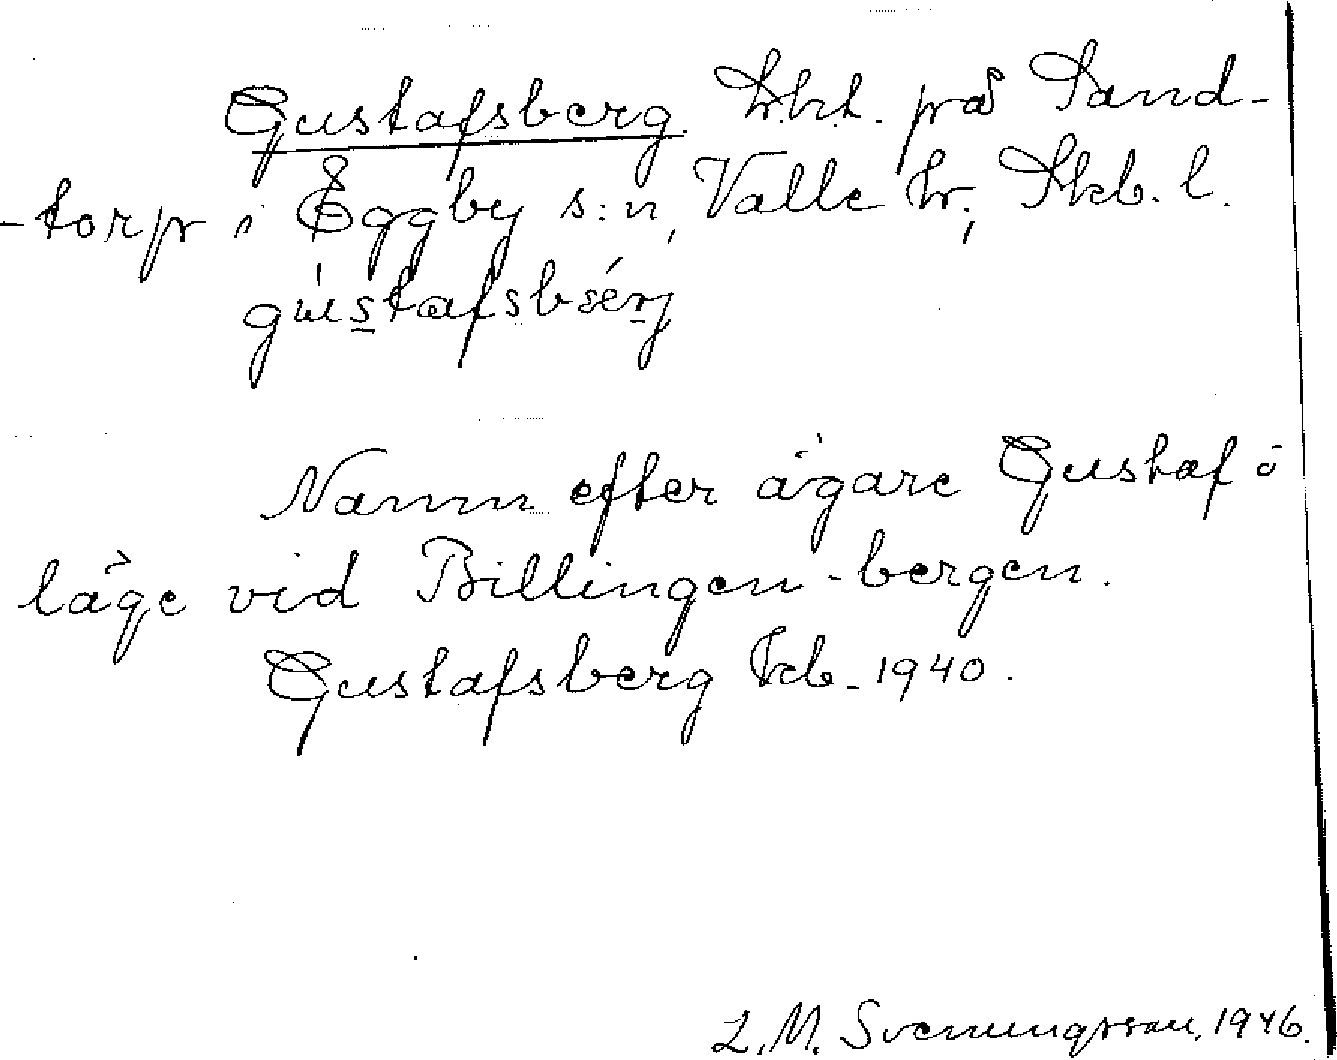 Gustafsberg. h.h.t. på Sand-
-torp i Eggby s:n, Valle hr, Skb. l.
gustafsbærj
Namn efter ägare Gustaf o
läge vid Billingen-bergen.
Gustafsberg kb. 1940.
L.M. Svenungsson, 1946.